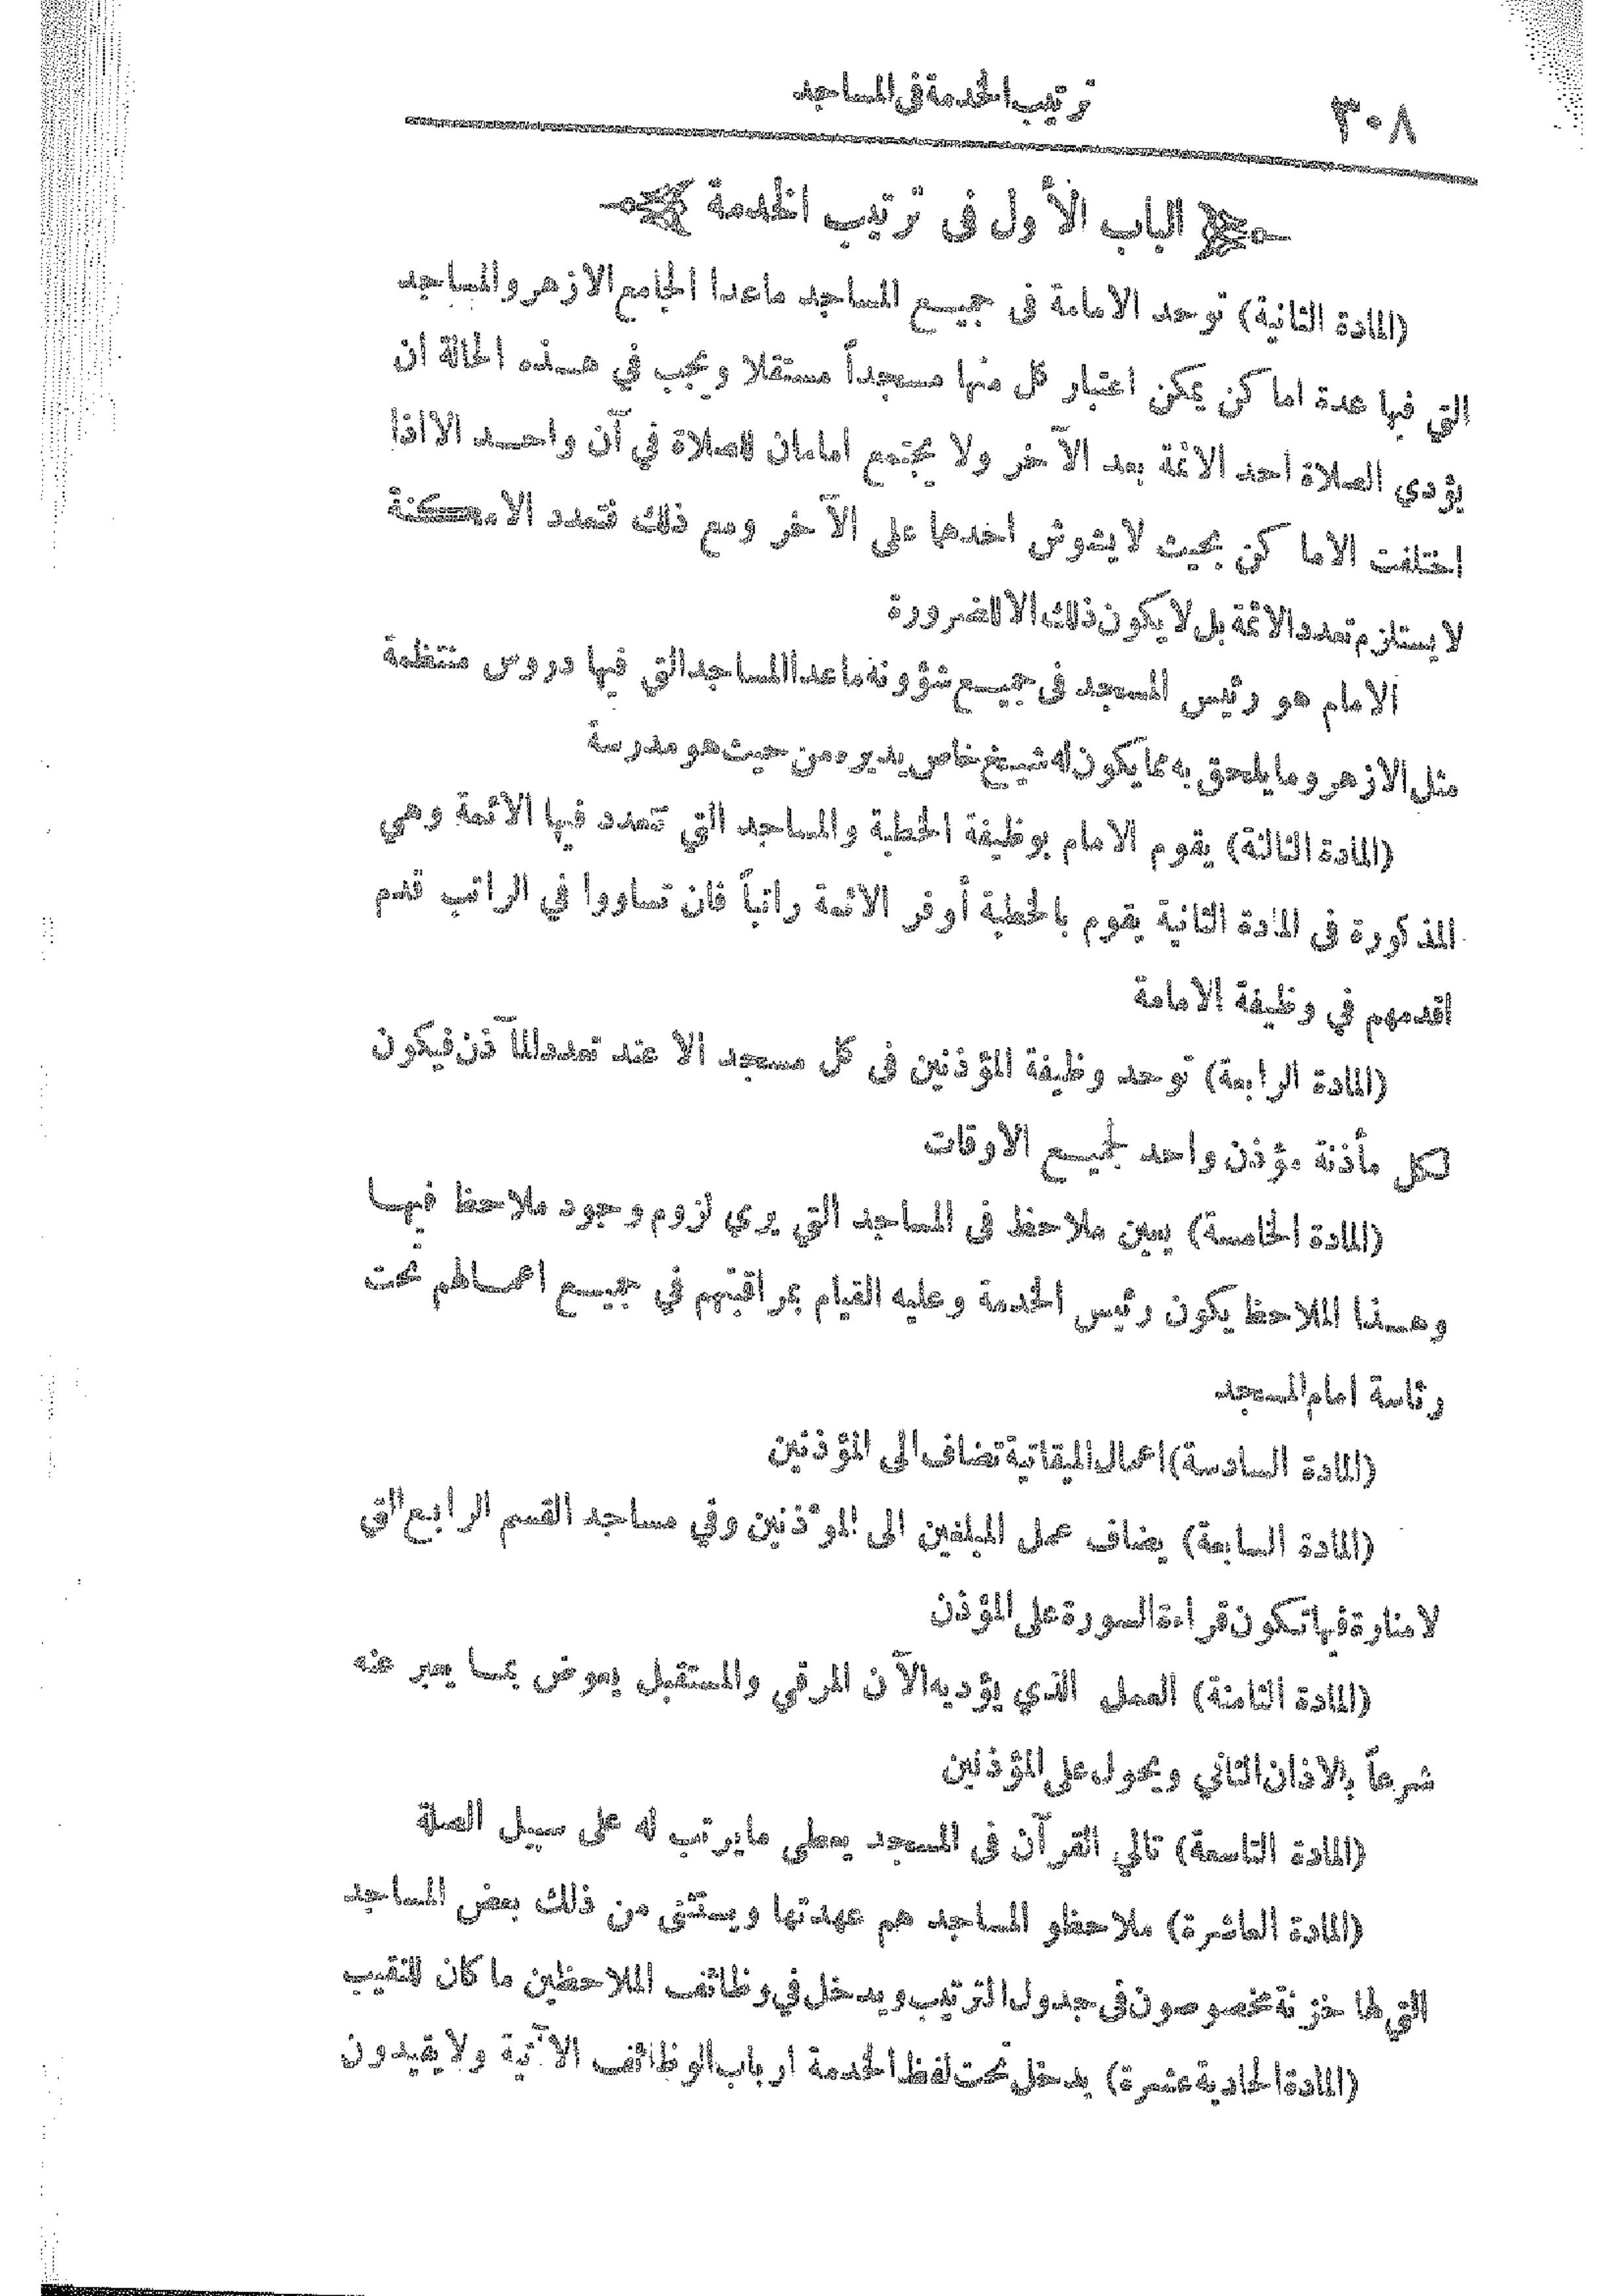 ٣٠٨ ترتيب الخدمة في المساجد
الباب الأول في ترتيب الخدمة
(المادة الثانية) توحد الامامة في جميع المساجد ماعدا الجامع الازهر والمساجد
التي فيها عدة اماكن يمكن اعتبار كل منها مسجداً مستقلا ويجب في هذه الحالة ان
يؤدي الصلاة احد الائمة بعد الآخر ولا يجتمع امامان للصلاة في آن واحد الا اذا
اختلفت الاماكن بحيث لا يشوش احدهما على الآخر ومع ذلك فتعدد الامكنة
لا يستلزم تعدد الائمة بل لا يكون ذلك الا للضرورة
الامام هو رئيس المسجد في جميع شؤونه ماعدا المساجد التي فيها دروس منتظمة
مثل الازهر وما يلحق به مما يكون له شيخ خاص يديره من حيث هو مدرسة
(المادة الثالثة) يقوم الامام بوظيفة الخطبة والمساجد التي تتعدد فيها الائمة وهي
المذكورة في المادة الثانية يقوم بالخطبة أوفر الائمة راتباً فان تساووا في الراتب قدم
اقدمهم في وظيفة الامامة
(المادة الرابعة) توحد وظيفة المؤذنين في كل مسجد الا عند تعدد المآذن فيكون
لكل مأذنة مؤذن واحد لجميع الاوقات
(المادة الخامسة) يعين ملاحظ في المساجد التي يرى لزوم وجود ملاحظ فيها
وهذا الملاحظ يكون رئيس الخدمة وعليه القيام بمراقبتهم في جميع اعمالهم تحت
رئاسة امام المسجد
(المادة السادسة) اعمال الميقاتية تضاف الى المؤذنين
(المادة السابعة) يضاف عمل المبلغين الى المؤذنين وفي مساجد القسم الرابع التي
لا منارة فيها تكون قراءة السورة على المؤذن
(المادة الثامنة) العمل الذي يؤديه الآن المرقي والمستقبل يعوض بما يعبر عنه
شرعاً بالاذان الثاني ويحول على المؤذنين
(المادة التاسعة) تالي القرآن في المسجد يعطى ما يرتب له على سبيل الصلة
(المادة العاشرة) ملاحظو المساجد هم عهدتها ويستثنى من ذلك بعض المساجد
التي لها خزنة مخصوصون في جدول الترتيب ويدخل في وظائف الملاحظين ما كان للنقيب
(المادة الحادية عشرة) يدخل تحت لفظ الخدمة ارباب الوظائف الآتية ولا يقيدون